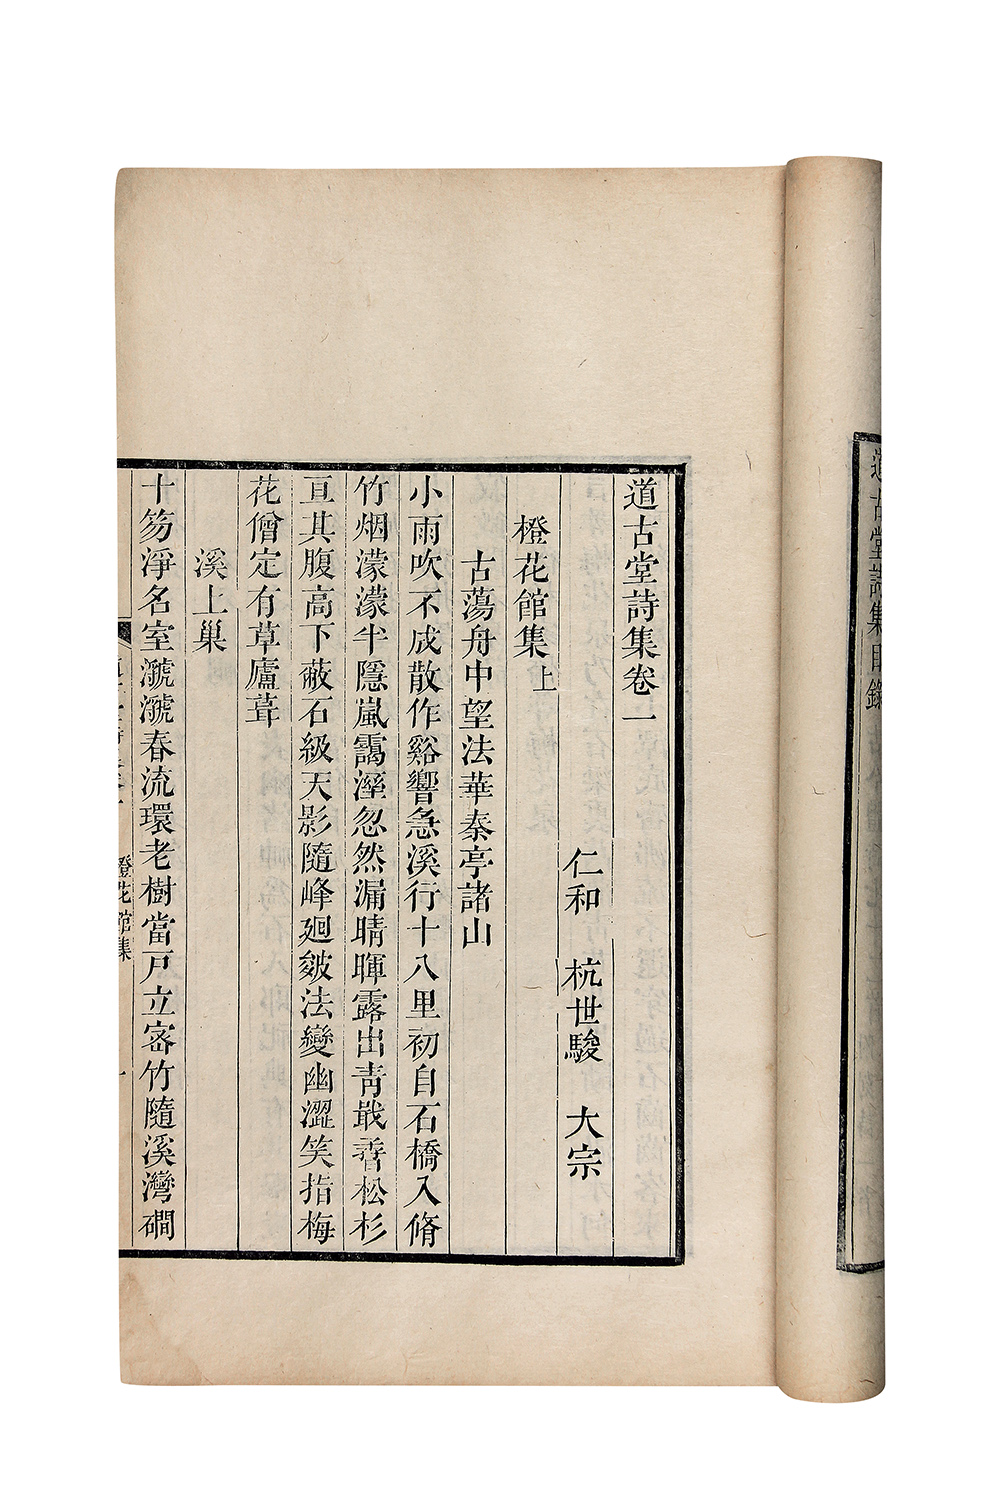 道古堂詩集目錄
道古堂詩集卷一
仁和 杭世駿 大宗
橙花館集上
古蕩舟中望法華秦亭諸山
小雨吹不成散作谿響急溪行十八里初自石橋入脩
竹烟濛濛半隱嵐靄溼忽然漏晴暉露出青戢孴松杉
亘其腹高下蔽石級天影隨峰廻皴法變幽澀笑指梅
花僧定有草廬葺
溪上巢
十笏淨名室㶁㶁春流環老樹當戸立宻竹隨溪灣磵
橙花館集
一